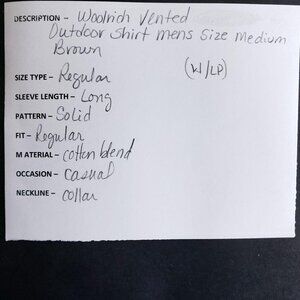 DESCRIPTION - Woolrich Vented
Outdoor Shirt mens Size medium
Brown
(W/LP)
SIZE TYPE - Regular
SLEEVE LENGTH - Long
PATTERN - Solid
FIT - Regular
MATERIAL - cotton blend
OCCASION - casual
NECKLINE - collar